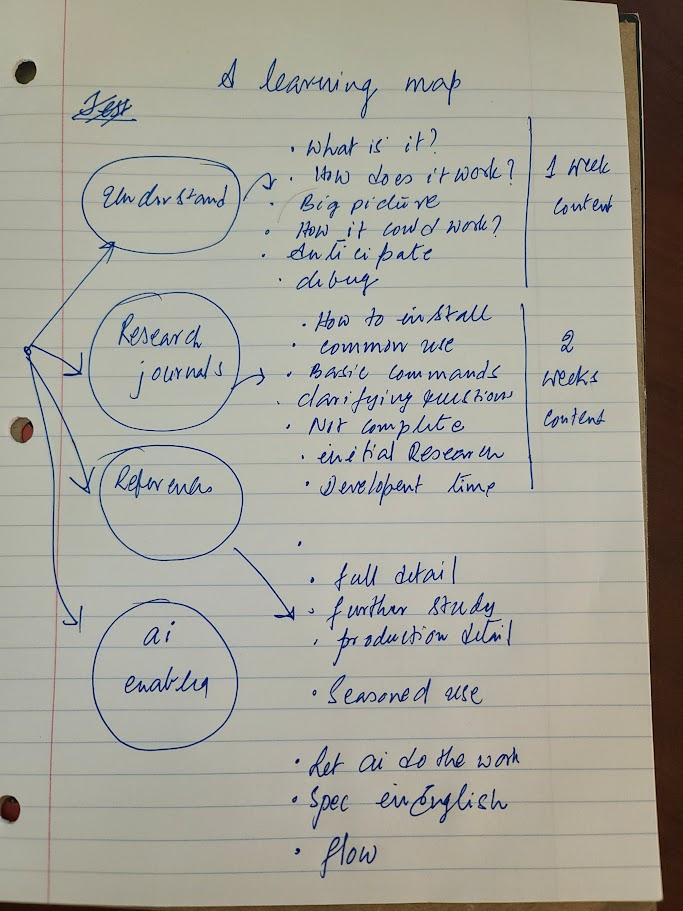 A learning map
Test
Understand
• What is it?
• How does it work?
• Big picture
• How it could work?
• Anticipate
• debug
1 week
content
Research
journals
• How to install
• common use
• Basic commands
• clarifying questions
• Not complete
• initial Research
• Developent time
2
weeks
content
References
•
• full detail
• further study
• production detail
• Seasoned use
ai
enabled
• Let ai do the work
• Spec in English
• flow